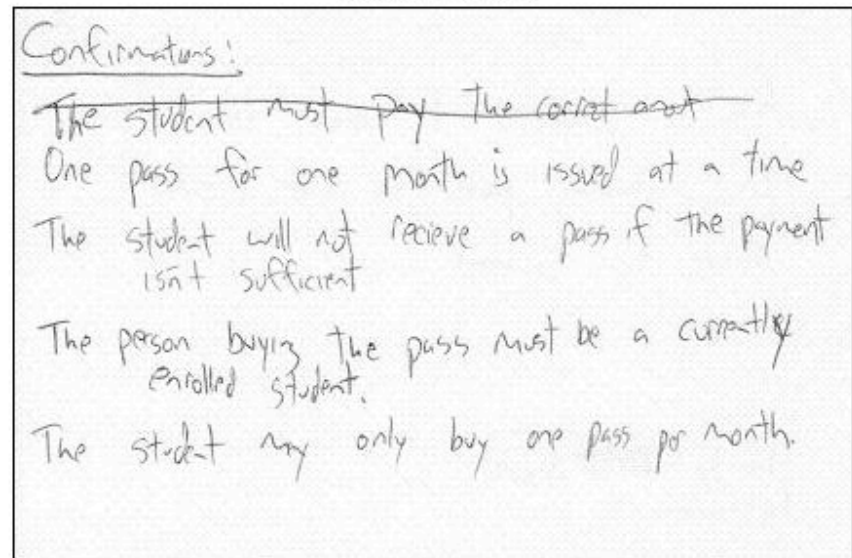 Confirmations:
The student must pay the corret amout
One pass for one month is issued at a time
The student will not recieve a pass if the payment
isn't sufficient
The person buying the pass must be a currently
enrolled student.
The student may only buy one pass per month.